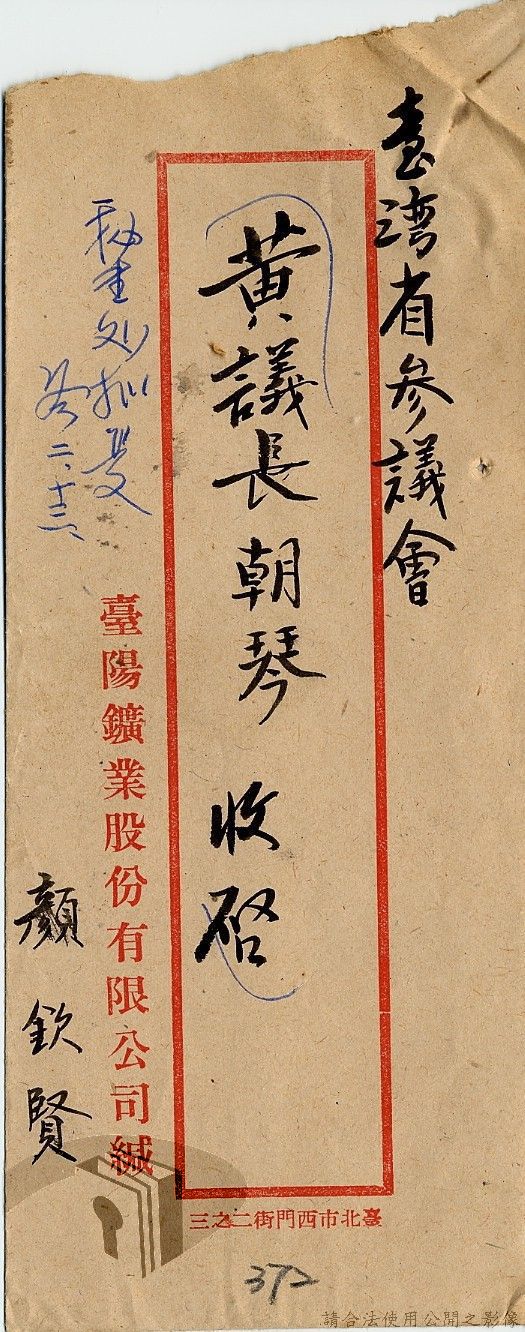 臺湾省参議會
黃議長朝琴 收啓
秘書处拟复
二、十三、
臺陽鑛業股份有限公司緘
顏欽賢
臺北市西門街二之三
372
請合法使用公開之影像